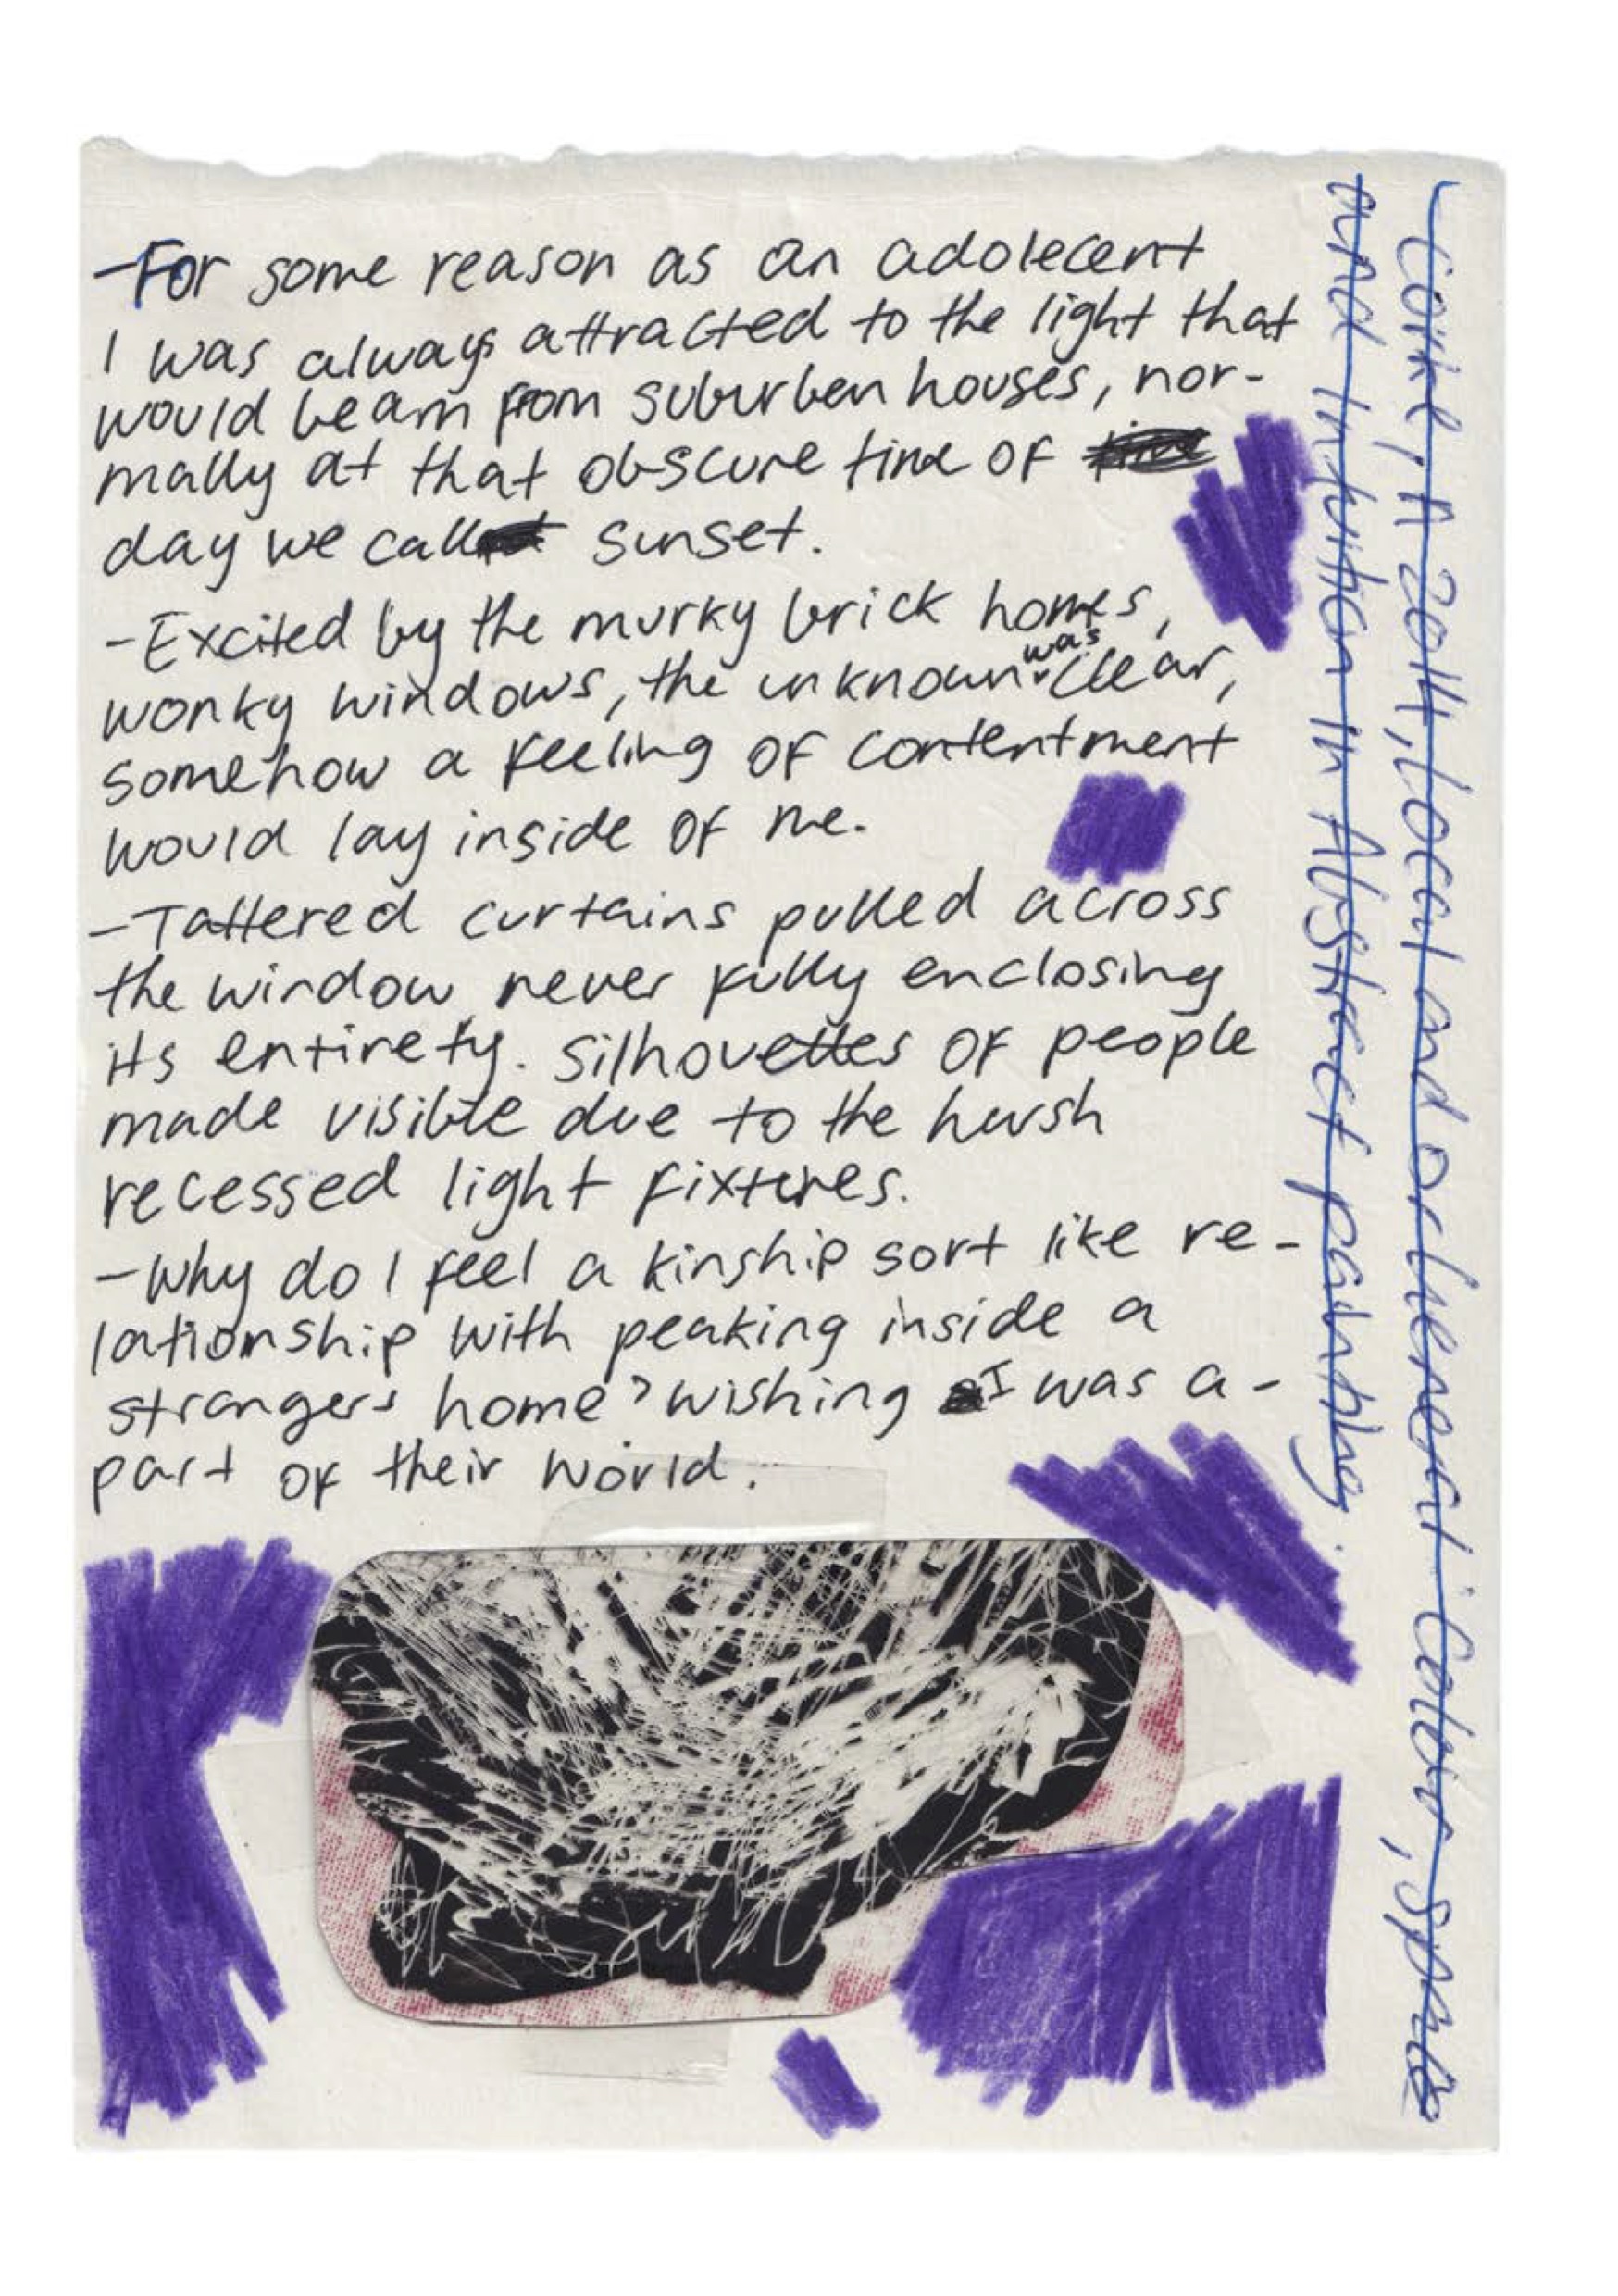 -For some reason as an adolecent
I was always attracted to the light that
would beam from suburben houses, nor-
mally at that obscure time of
day we call sunset.
-Excited by the murky brick homes,
wonky windows, the unknown was clear,
somehow a feeling of contentment
would lay inside of me.
-Tattered curtains pulled across
the window never fully enclosing
its entirety. Silhouettes of people
made visible due to the harsh
recessed light fixtures.
-Why do I feel a kinship sort like re-
lationship with peaking inside a
strangers home? wishing I was a-
part of their world.
2014, Local and or Luenear Color, Space
and Intuition in Abstract painting.